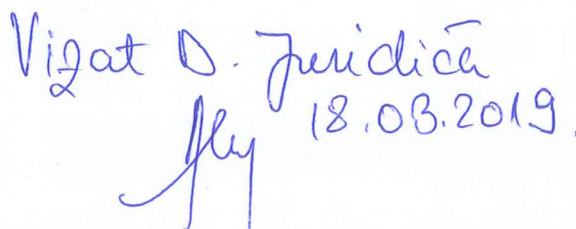 Vizat D. Juridică
18.03.2019.